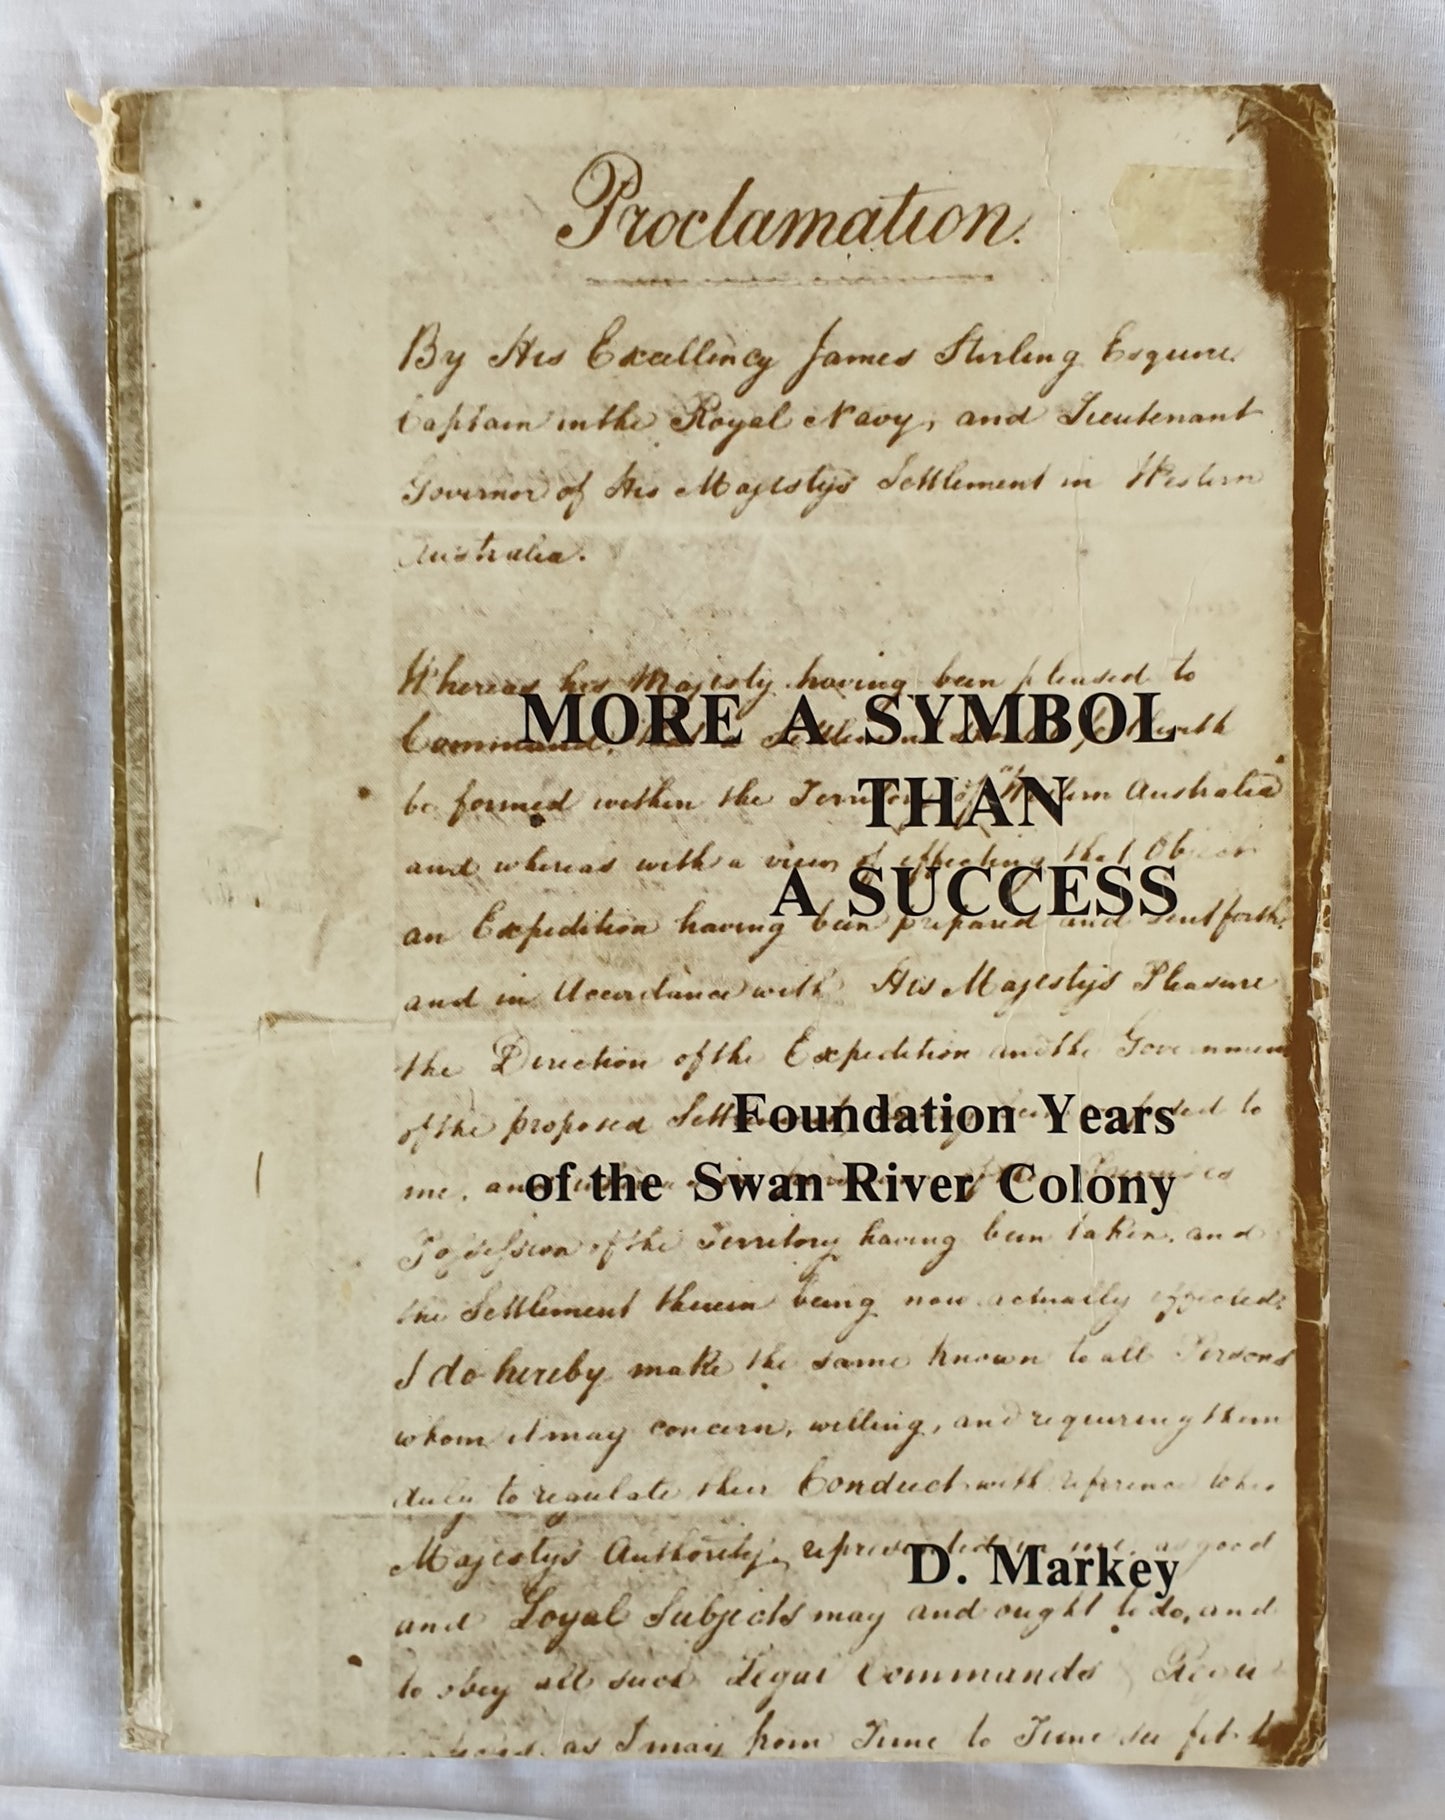 Proclamation.
By His Excellency James Stirling Esquire
Captain in the Royal Navy, and Lieutenant
Governor of His Majestys Settlement in Western
Australia.
Whereas his Majesty having been pleased to
Command,
MORE A SYMBOL
be formed within the Territory of Western Australia
THAN
and whereas with a view of effecting that Object
A SUCCESS
an Expedition having been prepared and sent forth,
and in Accordance with His Majestys Pleasure
the Direction of the Expedition and the Government
of the proposed to
Foundation Years
me,
of the Swan River Colony
Possession of the Territory having been taken, and
the Settlement therein being now actually effected;
I do hereby make the same known to all Persons
whom it may concern, willing, and requiring them
duly to regulate their Conduct with reference to his
Majestys Authority, represented in me, as good
D. Markey
and Loyal Subjects may and ought to do, and
to obey all such Legal Commands
as I may from Time to Time see fit to